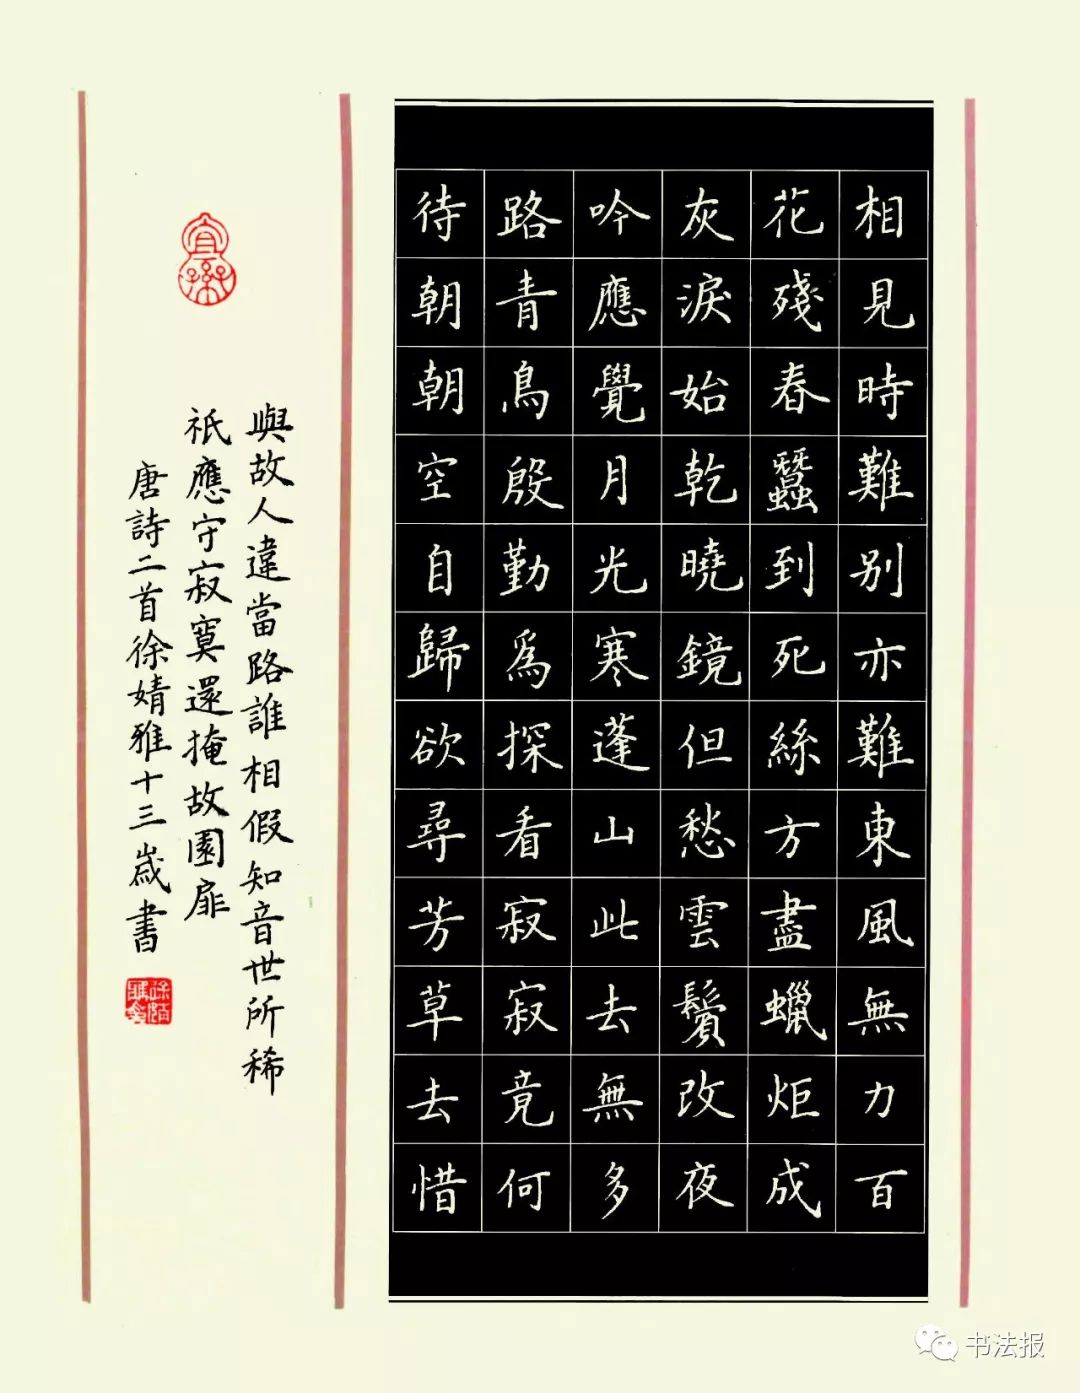 相見時難别亦難東風無力百
花殘春蠶到死絲方盡蠟炬成
灰淚始乾曉鏡但愁雲鬢改夜
吟應覺月光寒蓬山此去無多
路青鳥殷勤爲探看寂寂竟何
待朝朝空自歸欲尋芳草去惜
與故人違當路誰相假知音世所稀
祇應守寂寞還掩故園扉
唐詩二首徐婧雅十三歲書
书法报